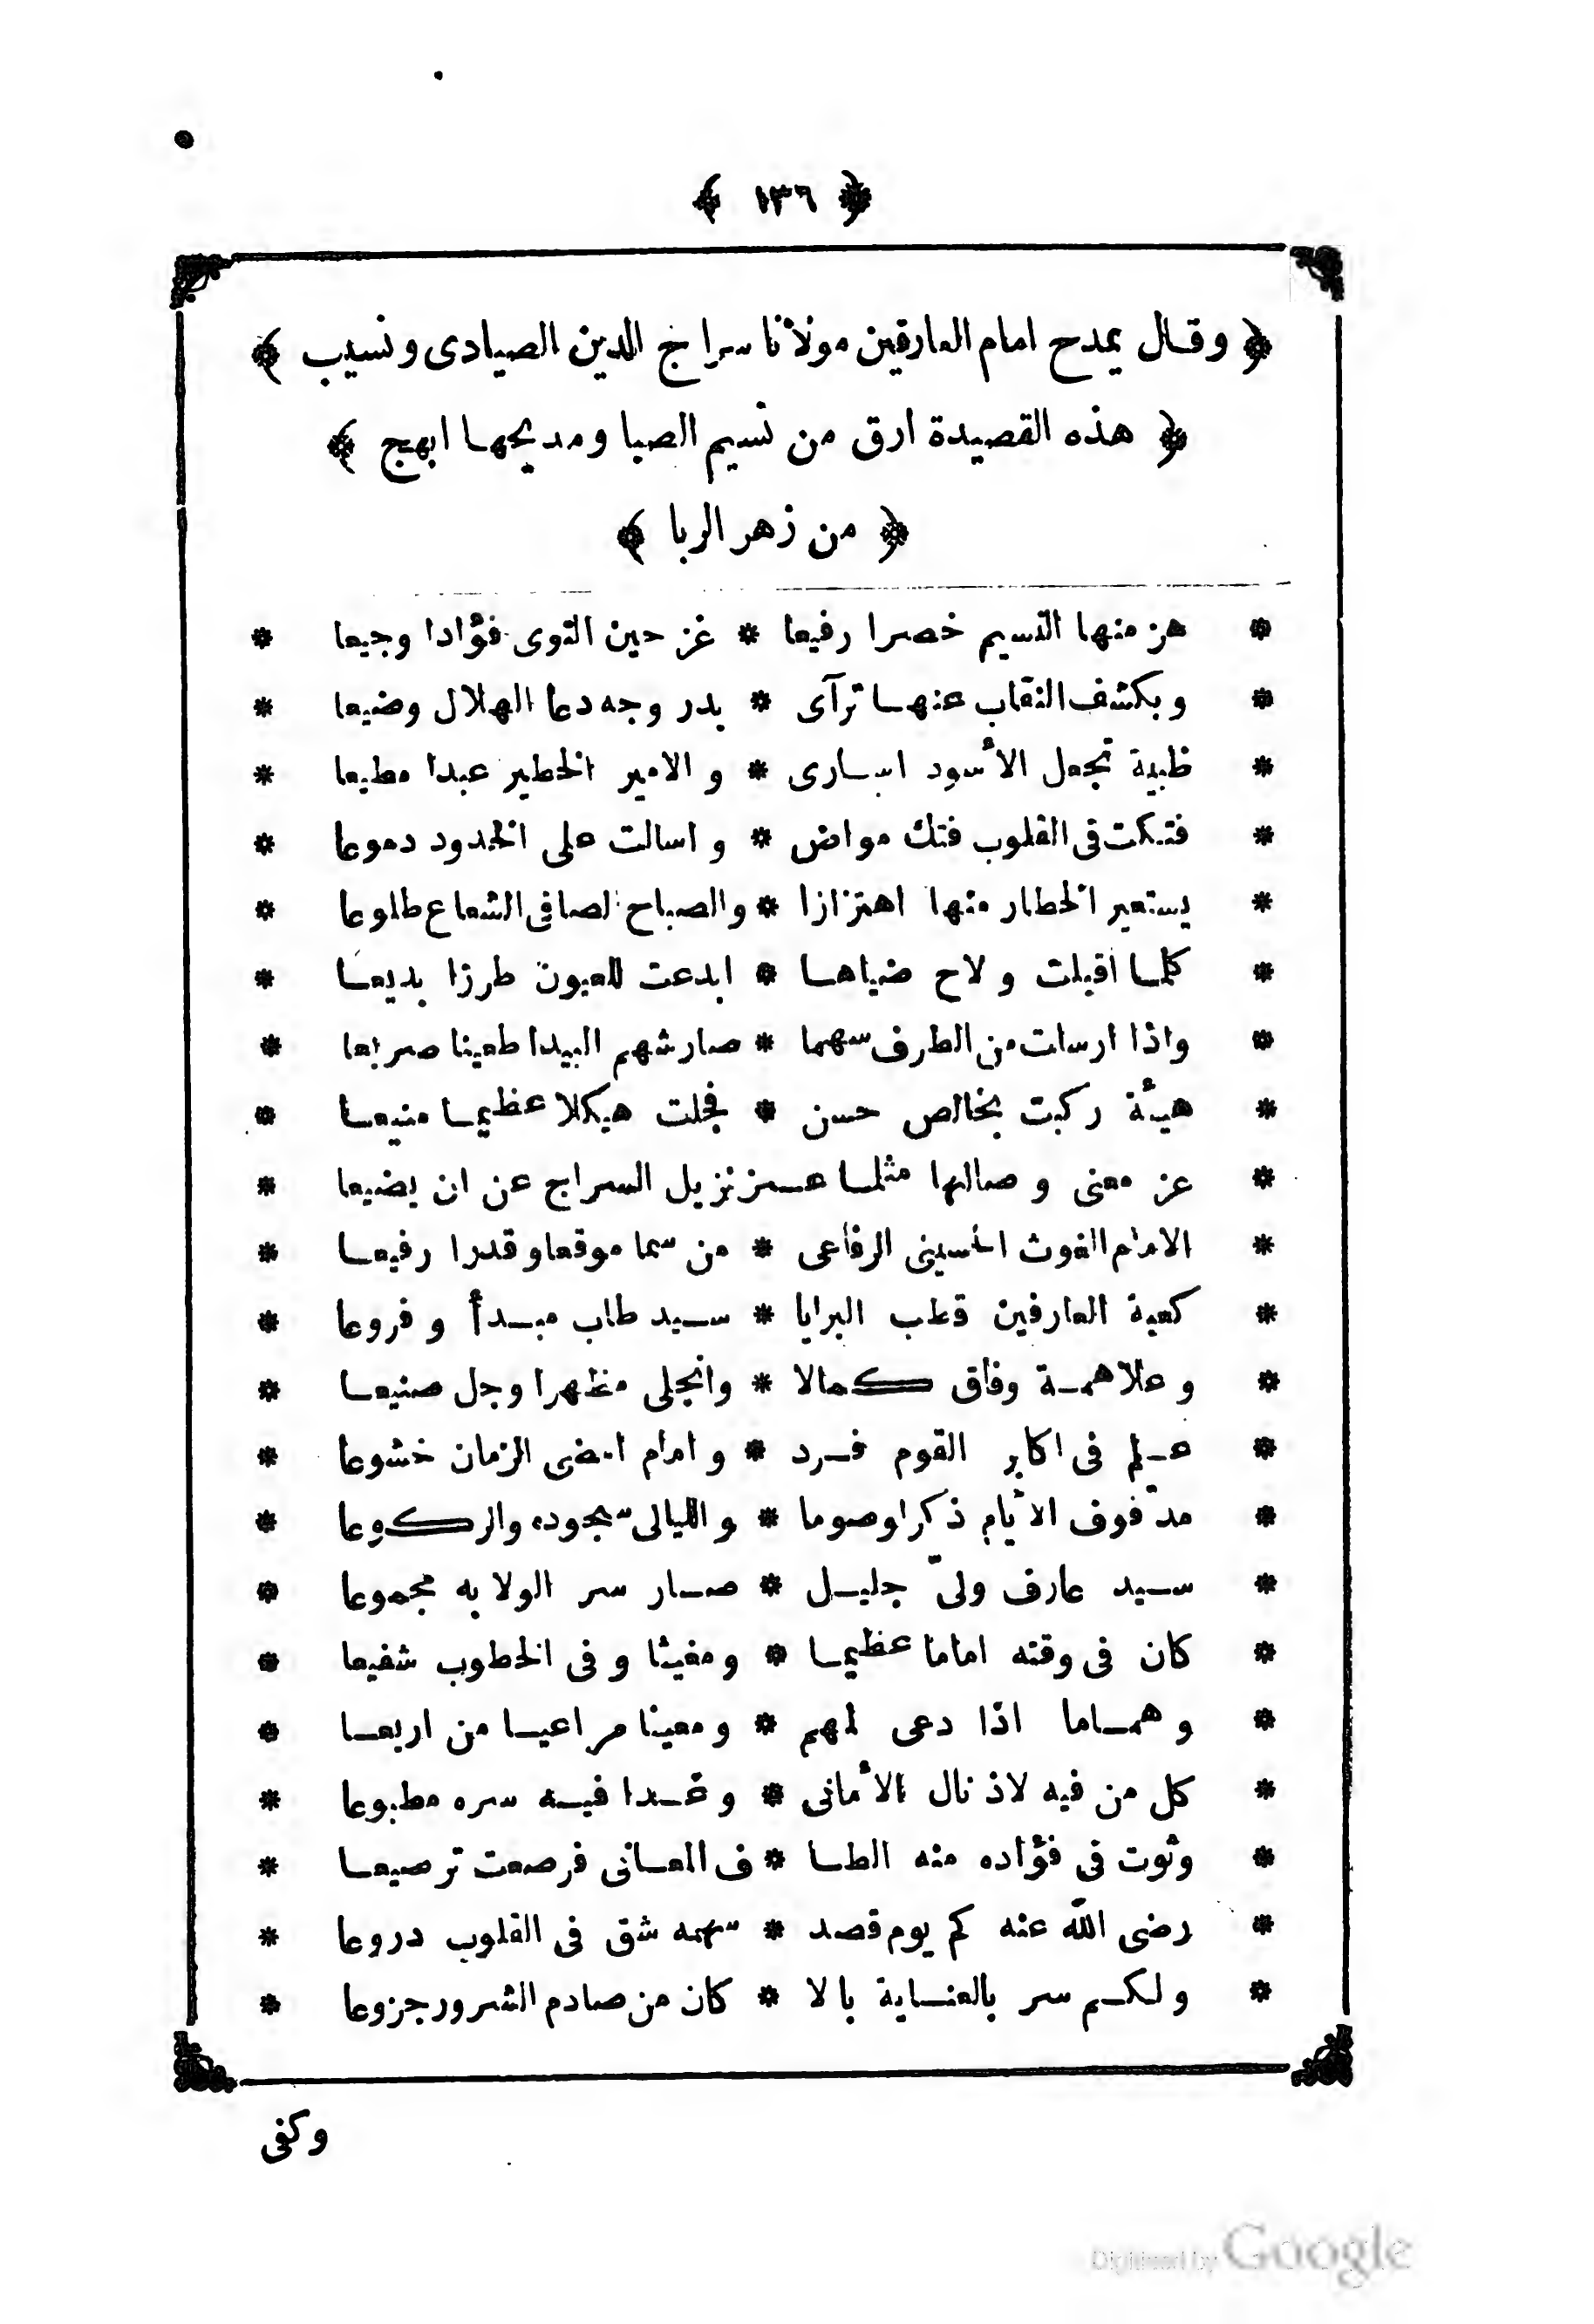 ﴿ ١٣٦ ﴾
﴿ وقال يمدح امام العارفين مولانا سراج الدين الصيادى ونسيب ﴾
﴿ هذه القصيدة ارق من نسيم الصبا ومديحها ابهج ﴾
﴿ من زهر الربا ﴾
* هز منها النسيم خصرا رفيعا * غز حين النوى فؤادا وجيعا *
* وبكشف النقاب عنها ترآى * بدر وجه دعا الهلال وضيعا *
* ظبية تجعل الأسود اسارى * والامير الخطير عبدا مطيعا *
* فتكت فى القلوب فتك مواض * واسالت على الخدود دموعا *
* يستعير الخطار منها اهتزازا * والصباح الصافى الشعاع طلوعا *
* كلما اقبلت ولاح ضياها * ابدعت للعيون طرزا بديعا *
* واذا ارسلت من الطرف سهما * صار شهم البيدا طعينا صريعا *
* هيئة ركبت بخالص حسن * فجلت هيكلا عظيما منيعا *
* عز معنى وصالها مثلما عز نزيل السراج عن ان يضيعا *
* الامام الغوث الحسينى الرفاعى * من سما موقعا وقدرا رفيعا *
* كعبة العارفين قطب البرايا * سيد طاب مبدأ وفروعا *
* وعلا همة وفاق كمالا * وانجلى مظهرا وجل صنيعا *
* علم فى اكابر القوم فرد * وامام امضى الزمان خشوعا *
* مدّ فوف الأيام ذكرا وصوما * والليالى سجوده والركوعا *
* سيد عارف ولىّ جليل * صار سر الولا به مجموعا *
* كان فى وقته اماما عظيما * ومغيثا وفى الخطوب شفيعا *
* وهماما اذا دعى لمهم * ومعينا مراعيا من اريعا *
* كل من فيه لاذ نال الأمانى * وغدا فيه سره مطبوعا *
* وثوت فى فؤاده منه الطا * ف المعانى فرصعت ترصيعا *
* رضى الله عنه كم يوم قصد * سهمه شق فى القلوب دروعا *
* ولكم سر بالعناية بالا * كان من صادم الشرور جزوعا *
وكفى
Digitized by Google